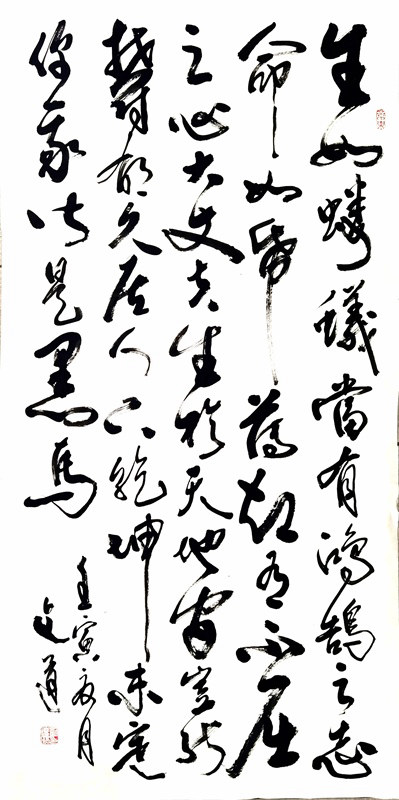 生如螻蟻當有鴻鵠之志
命如帋薄却有不屈
之心大丈夫生於天地間豈能
鬱郁久居人下乾坤未定
你我皆是黑馬
壬寅夏月
文道